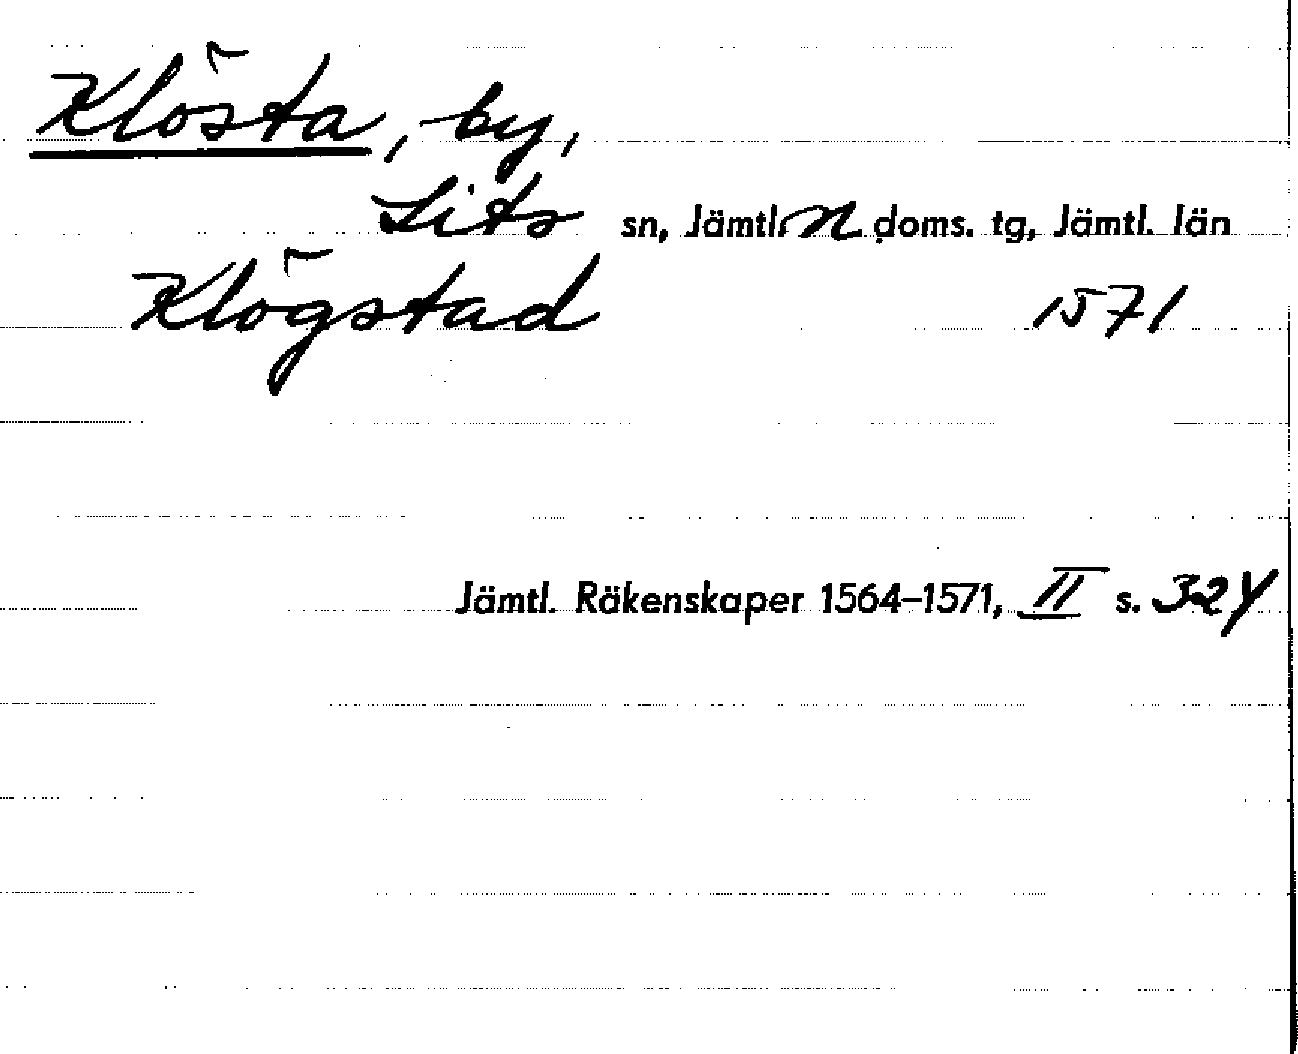 Klösta, by,
Lits sn, Jämtl. n doms. tg, Jämtl. län
Klögstad 1571
Jämtl. Räkenskaper 1564–1571, II s. 324